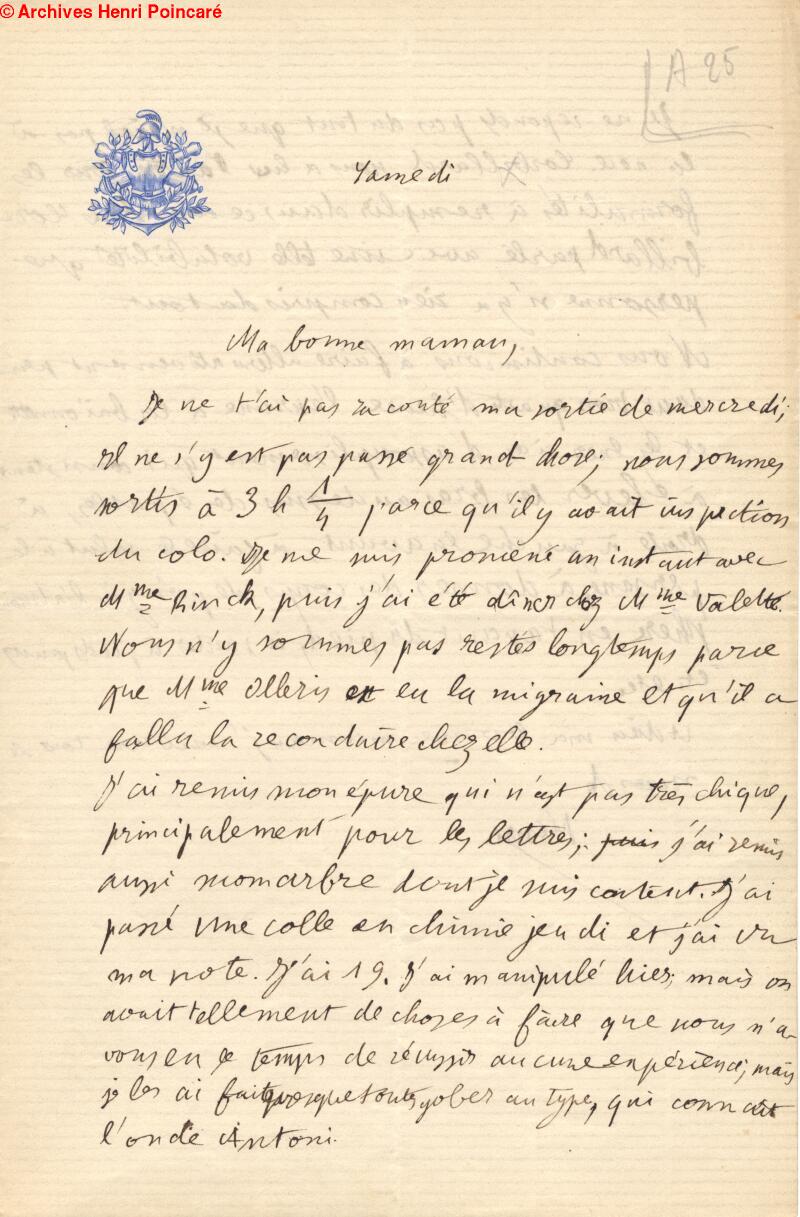 © Archives Henri Poincaré
A 25
Samedi
Ma bonne maman,
Je ne t'ai pas raconté ma sortie de mercredi;
il ne s'y est pas passé grand chose; nous sommes
sortis à 3 h 1/4 parce qu'il y avait inspection
du colo. Je me suis promené un instant avec
Mme Rinck, puis j'ai été dîner chez Mme Valette.
Nous n'y sommes pas restés longtemps parce
que Mme Olleris a eu la migraine et qu'il a
fallu la reconduire chez elle.
J'ai remis mon épure qui n'est pas très chique,
principalement pour les lettres; puis j'ai remis
aussi mon arbre dont je suis content. J'ai
passé une colle en chimie jeudi et j'ai vu
ma note. J'ai 19. J'ai manipulé hier; mais on
avait tellement de choses à faire que nous n'a-
vons eu le temps de réussir aucune expérience; mais
je les ai fait presque toutes gober au type, qui connait
l'oncle Antoni.